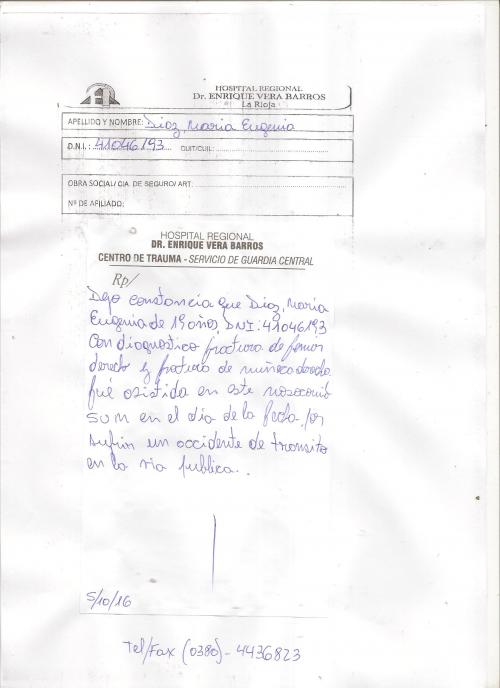 HOSPITAL REGIONAL
Dr. ENRIQUE VERA BARROS
La Rioja
APELLIDO Y NOMBRE: Diaz, Maria Eugenia
D.N.I.: 41046193 CUIT/CUIL:
OBRA SOCIAL/ CIA. DE SEGURO/ ART:
Nº DE AFILIADO:
HOSPITAL REGIONAL
DR. ENRIQUE VERA BARROS
CENTRO DE TRAUMA - SERVICIO DE GUARDIA CENTRAL
Rp/
Dejo constancia que Diaz, Maria
Eugenia de 19 años, DNI: 41046193
Con diagnostico fractura de femur
derecho y fractura de muñeca derecha
fué asistida en este nosocomio
en el dia de la fecha, por
sufrir un accidente de transito
en la via publica.
5/10/16
Tel/Fax (0380)- 4436823